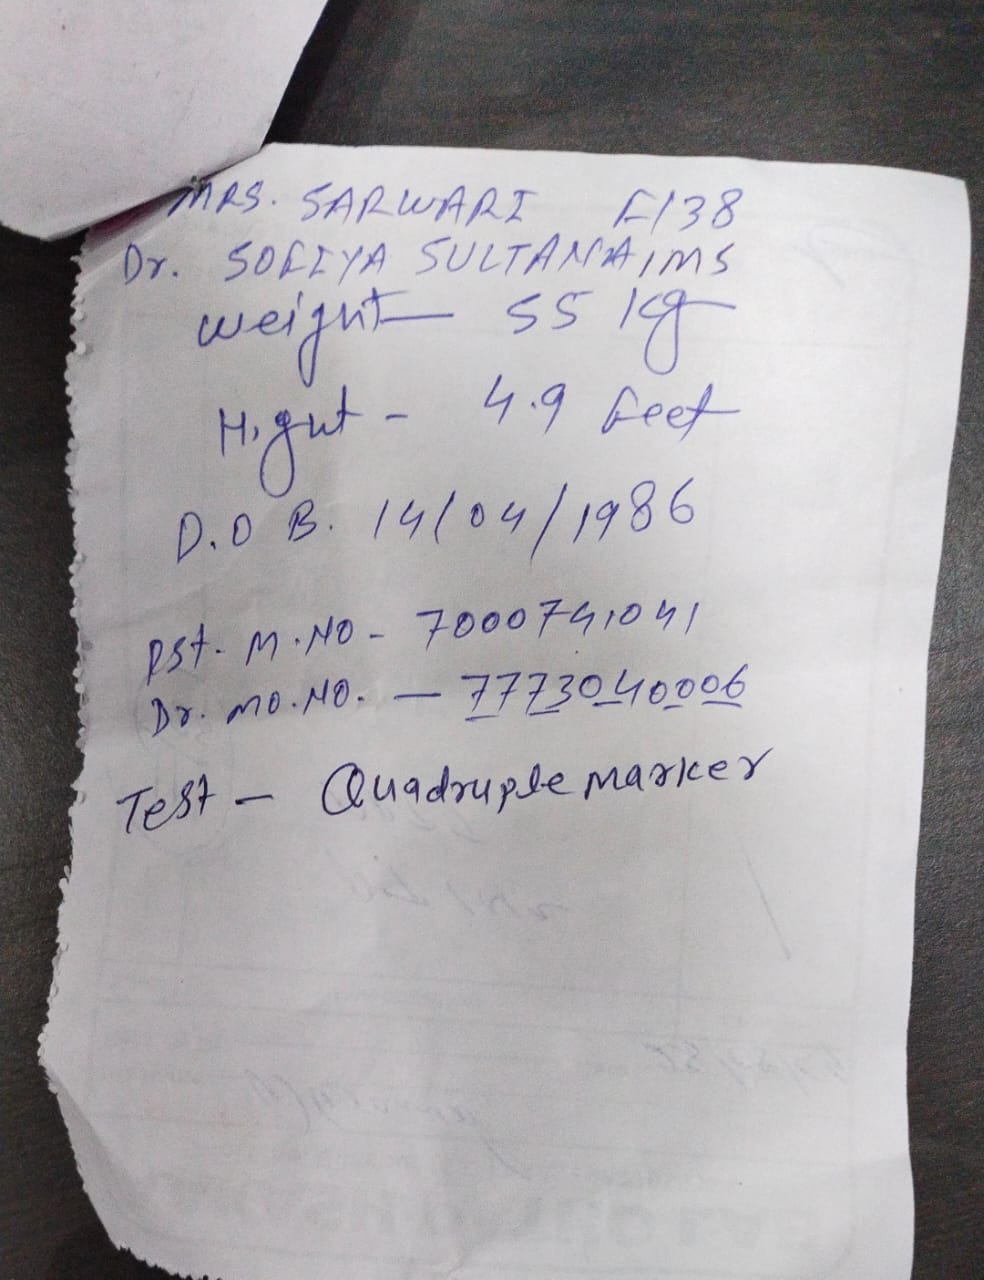 MRS. SARWARI F/38
Dr. SOFIYA SULTANA, MS
weight - 55 kg
Higut - 4.9 feet
D.O B. 14/04/1986
Pst. M.NO - 7000741041
Dr. MO.NO. - 7773040006
Test - Quadruple marker